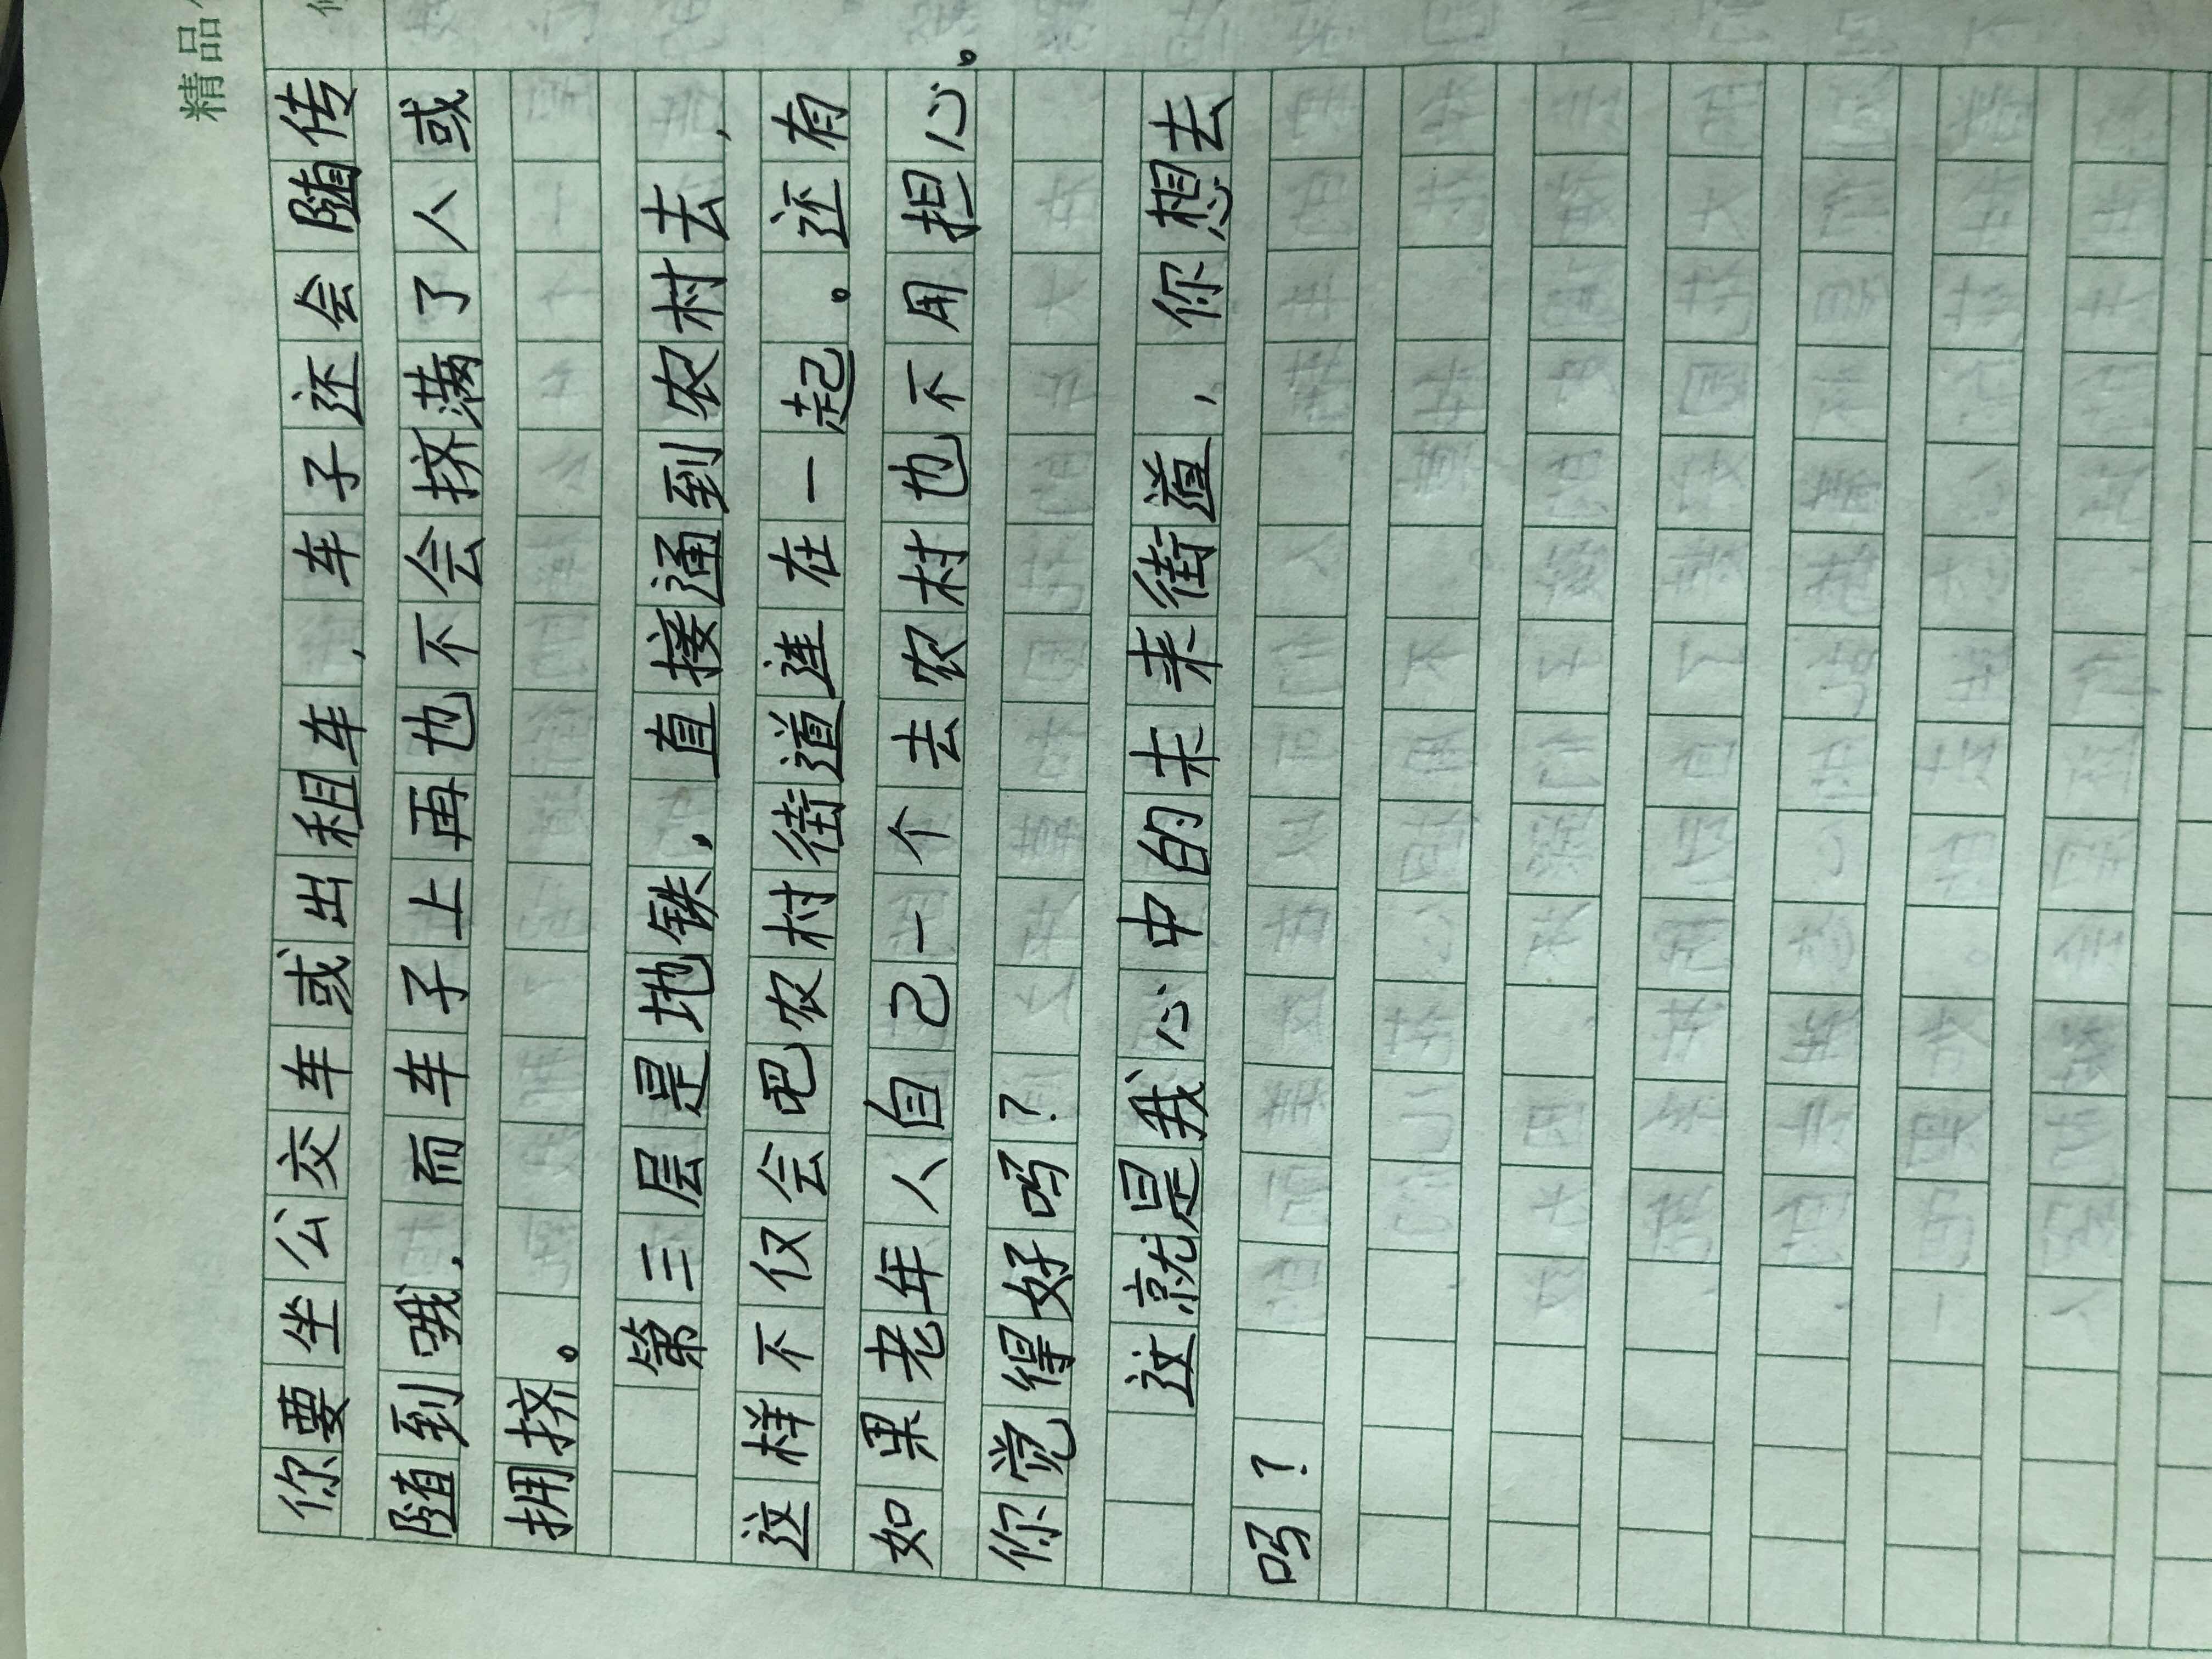 精品
你要坐公交车或出租车，车子还会随传
随到哦，而车子上再也不会挤满了人或
拥挤。
第三层是地铁，直接通到农村去，
这样不仅会吧农村街道连在一起。还有
如果老年人自己一个去农村也不用担心。
你觉得好吗？
这就是我心中的未来街道，你想去
吗？